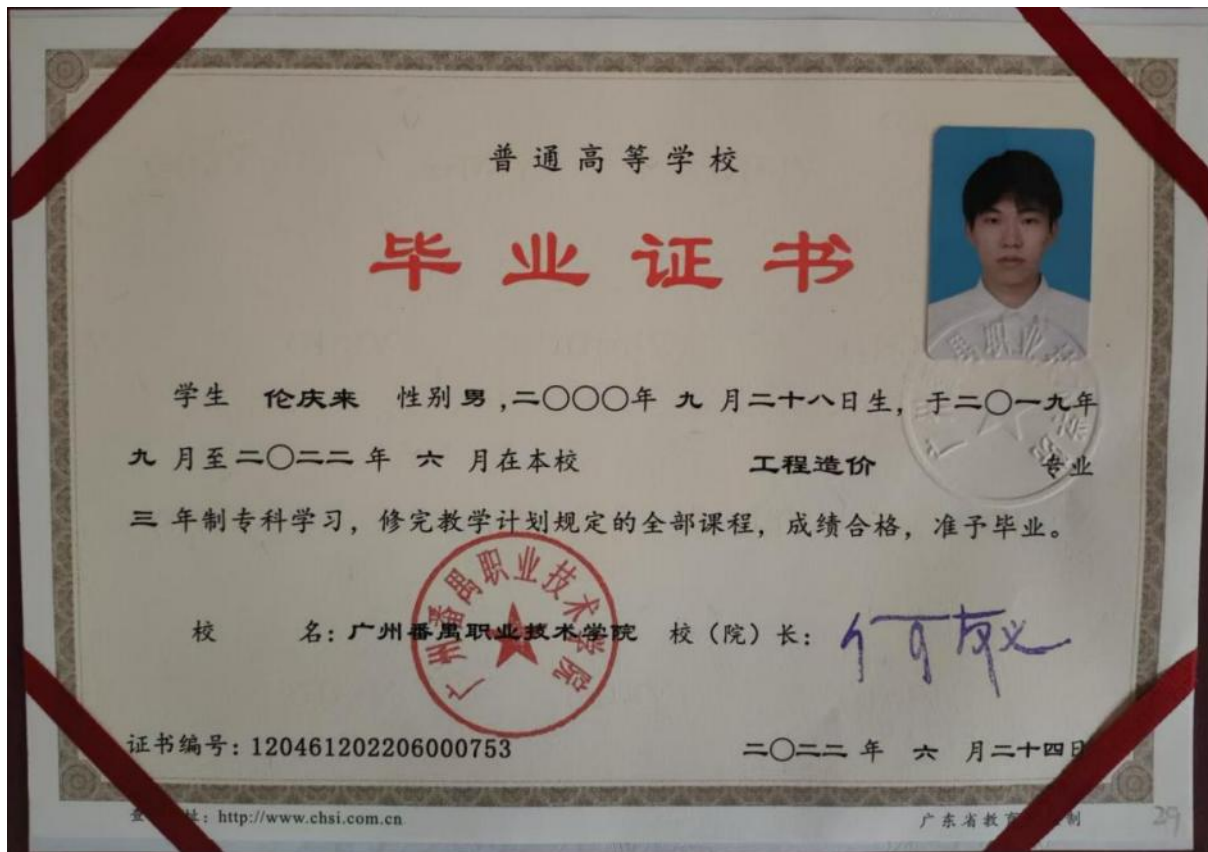 普通高等学校
毕业证书
学生 伦庆来 性别 男,二〇〇〇年 九 月二十八日生, 于二〇一九年
九 月至二〇二二 年 六 月在本校 工程造价 专业
三 年制专科学习, 修完教学计划规定的全部课程, 成绩合格, 准予毕业。
广州番禺职业技术学院
校 名: 广州番禺职业技术学院 校(院)长: 何友义
证书编号: 120461202206000753 二〇二二 年 六 月二十四日
址: http://www.chsi.com.cn 广东省教育 制
29